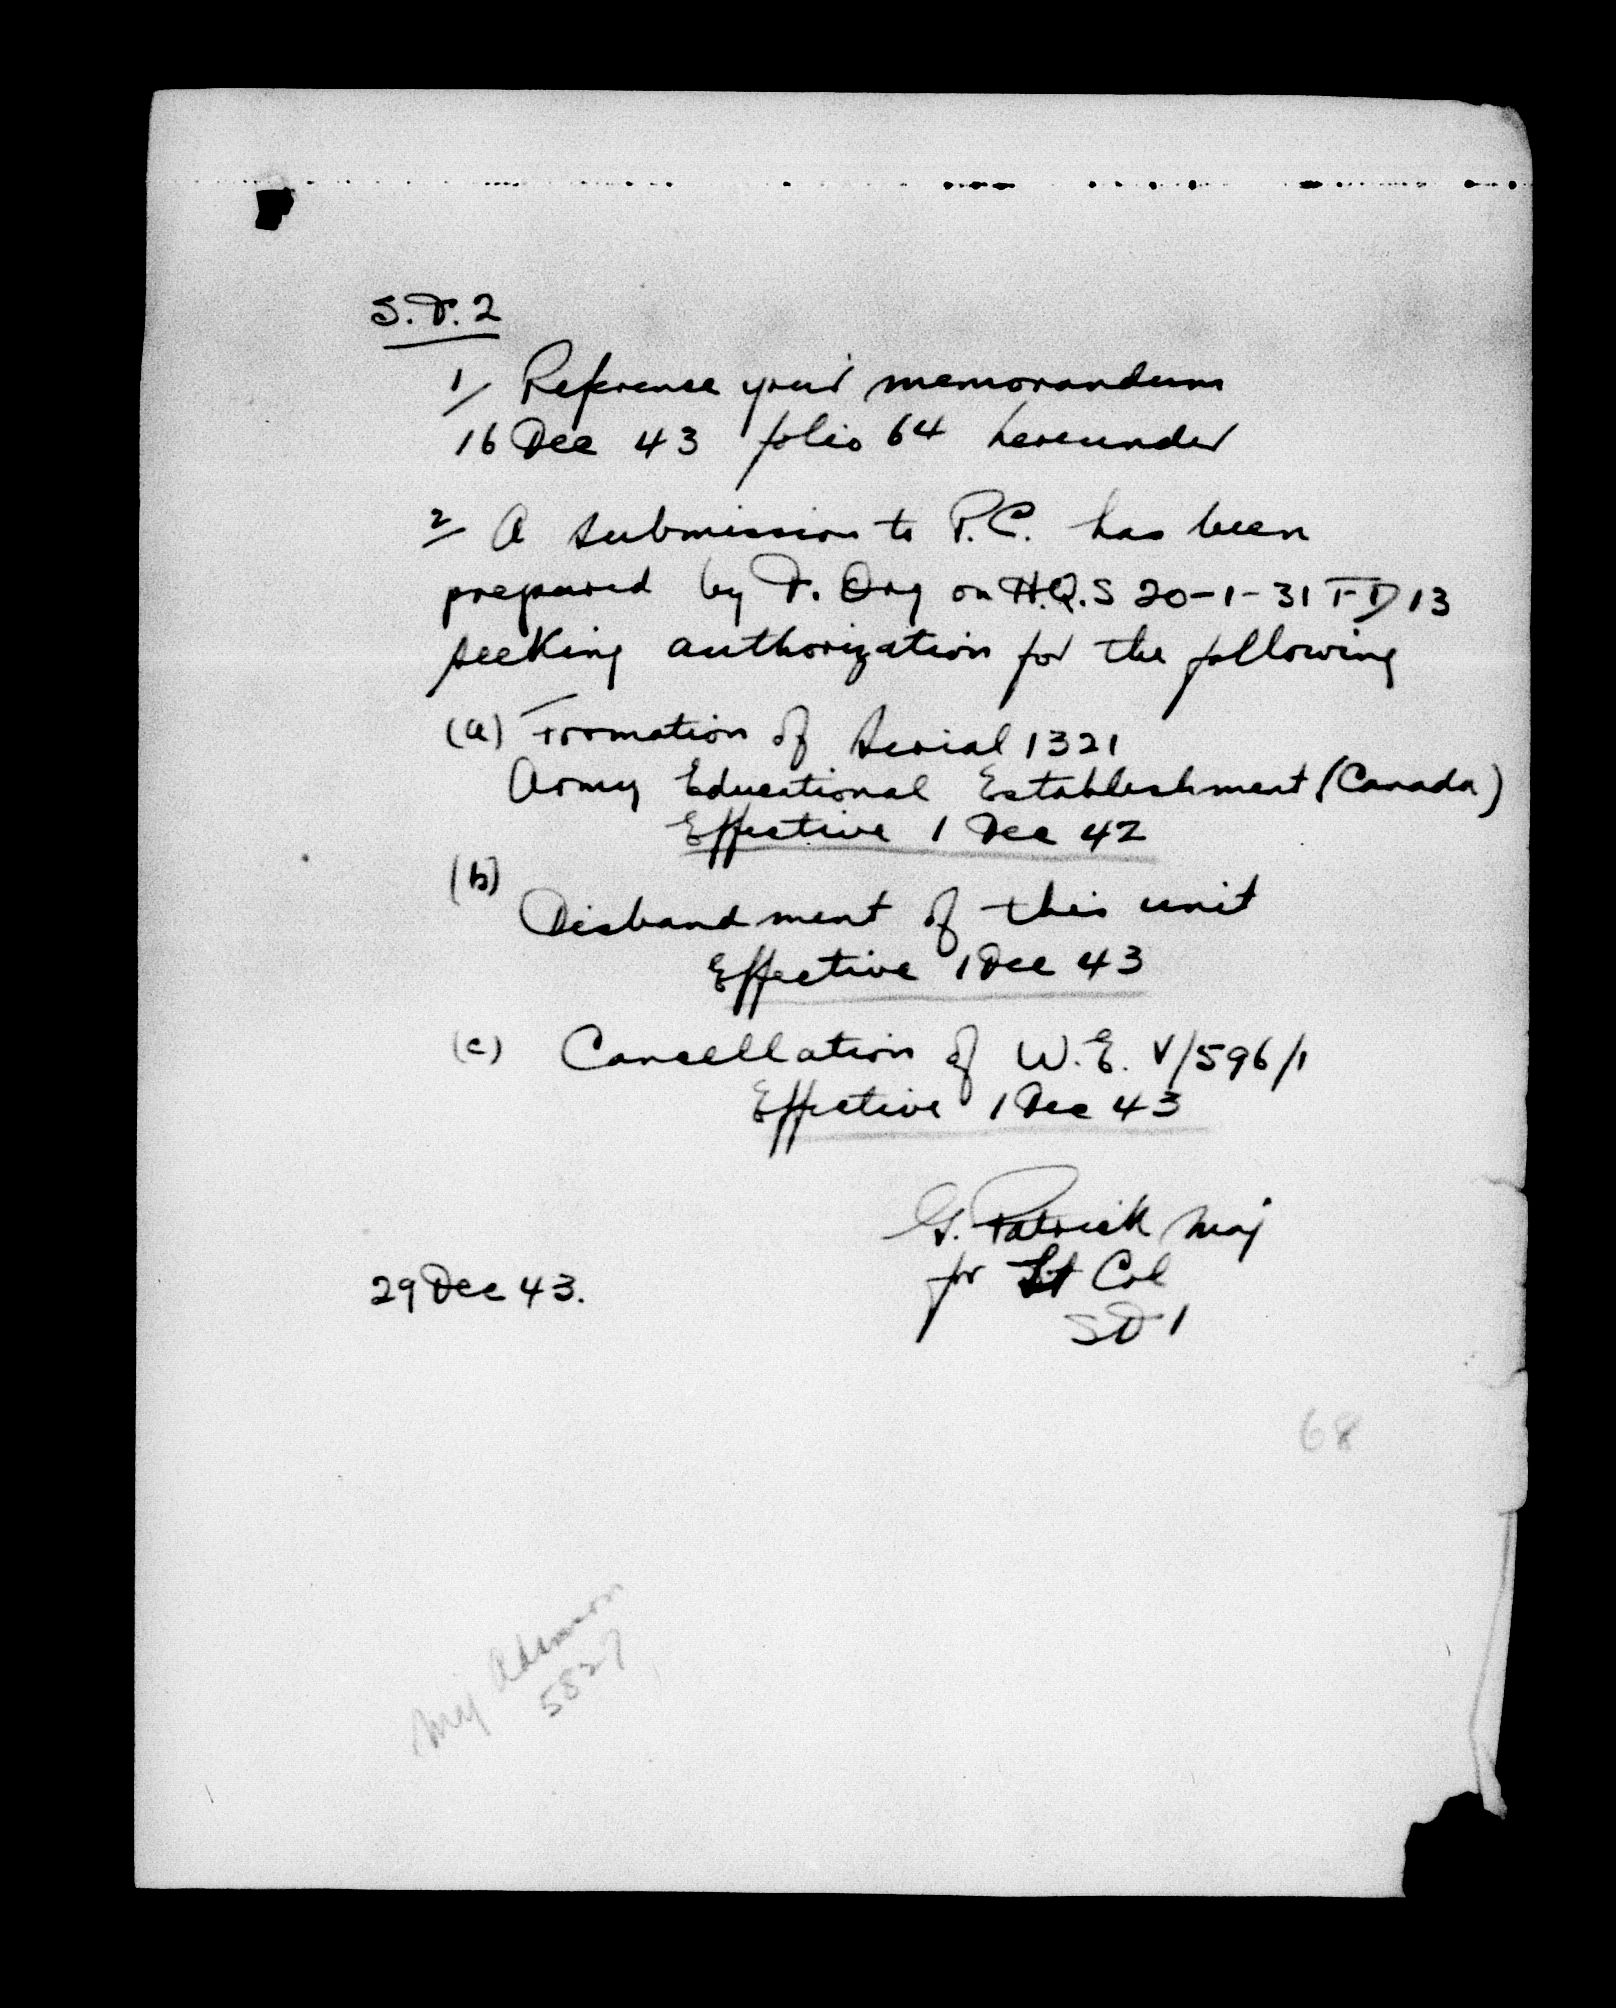 S.D.2
1/ Reference your memorandum
16 Dec 43 folio 64 hereunder
2/ A submission to P.C. has been
prepared by D. Org on H.Q.S 20-1-31 FD 13
seeking authorization for the following
(a) Formation of Serial 1321
Army Educational Establishment (Canada)
Effective 1 Dec 42
(b)
Disbandment of this unit
Effective 1 Dec 43
(c) Cancellation of W.E. V/596/1
Effective 1 Dec 43
G. Patrick Maj
for Lt Col
SD 1
29 Dec 43.
68
Maj Adamson
5827